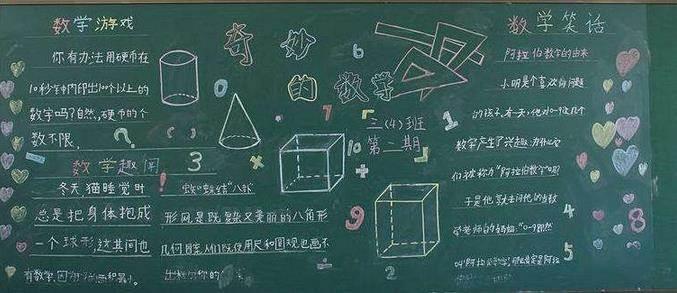 数学游戏
你有办法用硬币在
10秒钟内印出100个以上的
数字吗?自然,硬币的个
数不限.
?
( )
数学趣闻
冬天,猫睡觉时
总是把身体抱成
一个球形,这其间也
有数学,因为
奇妙
的数学
三(4)班
第二期
0
6
7
3
×
10
+
9
÷
2
1
4
5
8
八卦
形网,是既复杂又美丽的八角形
几何图案,人们既使用尺和圆规也画不
出
数学笑话
阿拉伯数字的由来
小明是个喜欢问
的孩子,有一天,他对0-9这几个
数字产生了兴趣:为什么它
们被称为"阿拉伯数字"呢?
于是他就去问他的
老师